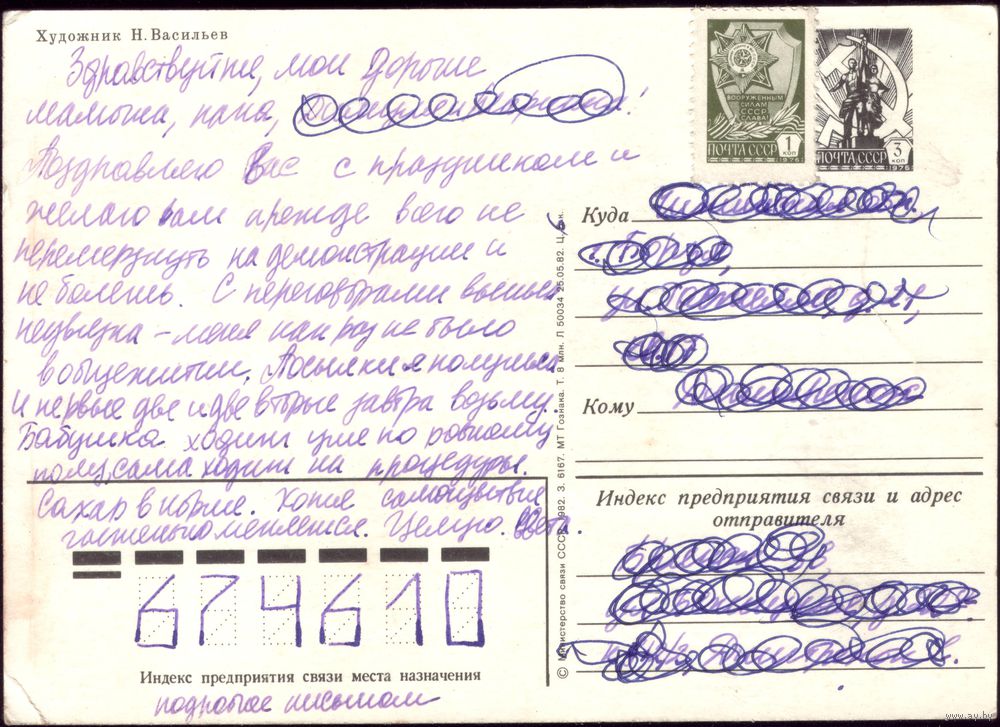 Художник Н. Васильев
Здравствуйте, мои дорогие
мамочка, папа,
Поздравляю Вас с праздником и
желаю вам прежде всего не
перемерзнуть на демонстрации и
не болеть. С переговорами вышла
неувязка – меня как раз не было
в общежитии. Посылки я получила
и первые две и две вторые завтра возьму.
Бабушка ходит уже по ровному
полу, сама ходит на процедуры.
Сахар в норме. Хотя самочувствие
частенько меняется. Целую. Света.
ВООРУЖЕННЫМ
СИЛАМ
СССР
СЛАВА!
ПОЧТА СССР 1 КОП
1976
ПОЧТА СССР 3 КОП
1976
Куда
Кому
Индекс предприятия связи и адрес
отправителя
674610
Индекс предприятия связи места назначения
подробнее письмом
© Министерство связи СССР, 1982. З. 6167. МТ Гознака. Т. 8 млн. Л 50034 25.05.82. Ц.
www.ay.by